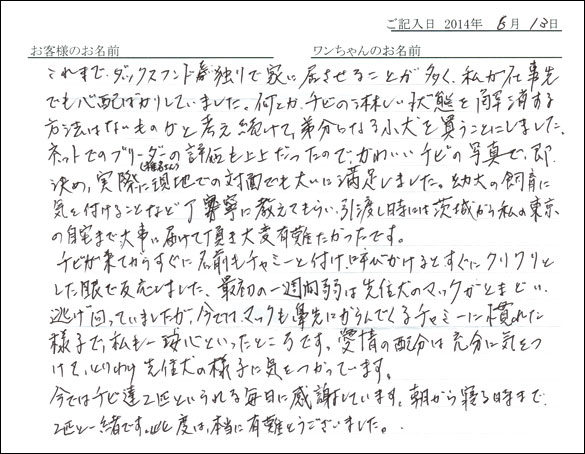 ご記入日 2014年 6月 13日
お客様のお名前 ワンちゃんのお名前
これまで、ダックスフンド一番独りで家に居させることが多く、私が仕事先
でも心配ばかりしていました。何とか、チビの淋しい状態を解消する
方法はないものかと考え続けて、弟分になる小犬を買うことにしました。
ネットでのブリーダーの評価も上上だったので、かわいいチビの写真で、即
決め、実際に現地での対面でも大いに満足しました。幼犬の飼育に
気を付けることなど丁寧に教えてもらい、引渡し時には茨城から私の東京
の自宅まで大事に届けて頂き大変有難たかったです。
チビが来てからすぐに名前もチャミーと付け、呼びかけるとすぐにクリクリと
した眼で反応しました。最初の一週間弱は先住犬のマックがとまどい、
逃げ回っていましたが、今では、マックも鼻先にからんでくるチャミーに慣れた
様子で、私も一安心といったところです。愛情の配分は充分に気をつ
けて、とりわけ先住犬の様子に気をつかっています。
今ではチビ達2匹といられる毎日に感謝しています。朝から寝る時まで
2匹と一緒です。此度は、本当に有難とうございました。